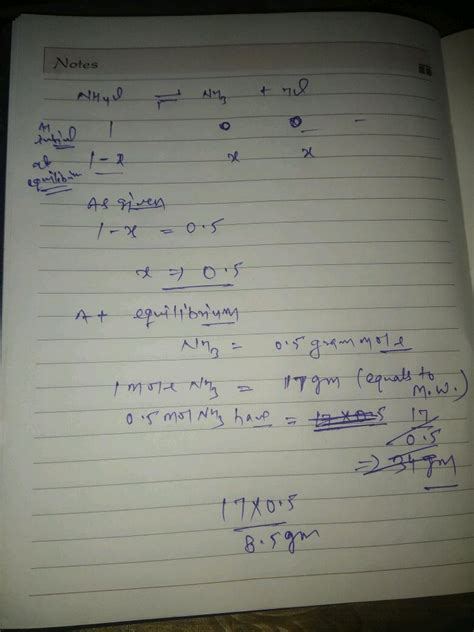 Notes
NH4Cl ⇌ NH3 + HCl
At initial 1 0 0 –
at equilibrium 1-x x x
As given
1-x = 0.5
x => 0.5
At equilibrium
NH3 = 0.5 gram mole
1 mole NH3 = 17 gm (equals to M.W.)
0.5 mol NH3 have = 17×0.5 17
0.5
=> 34 gm
17×0.5
8.5 gm